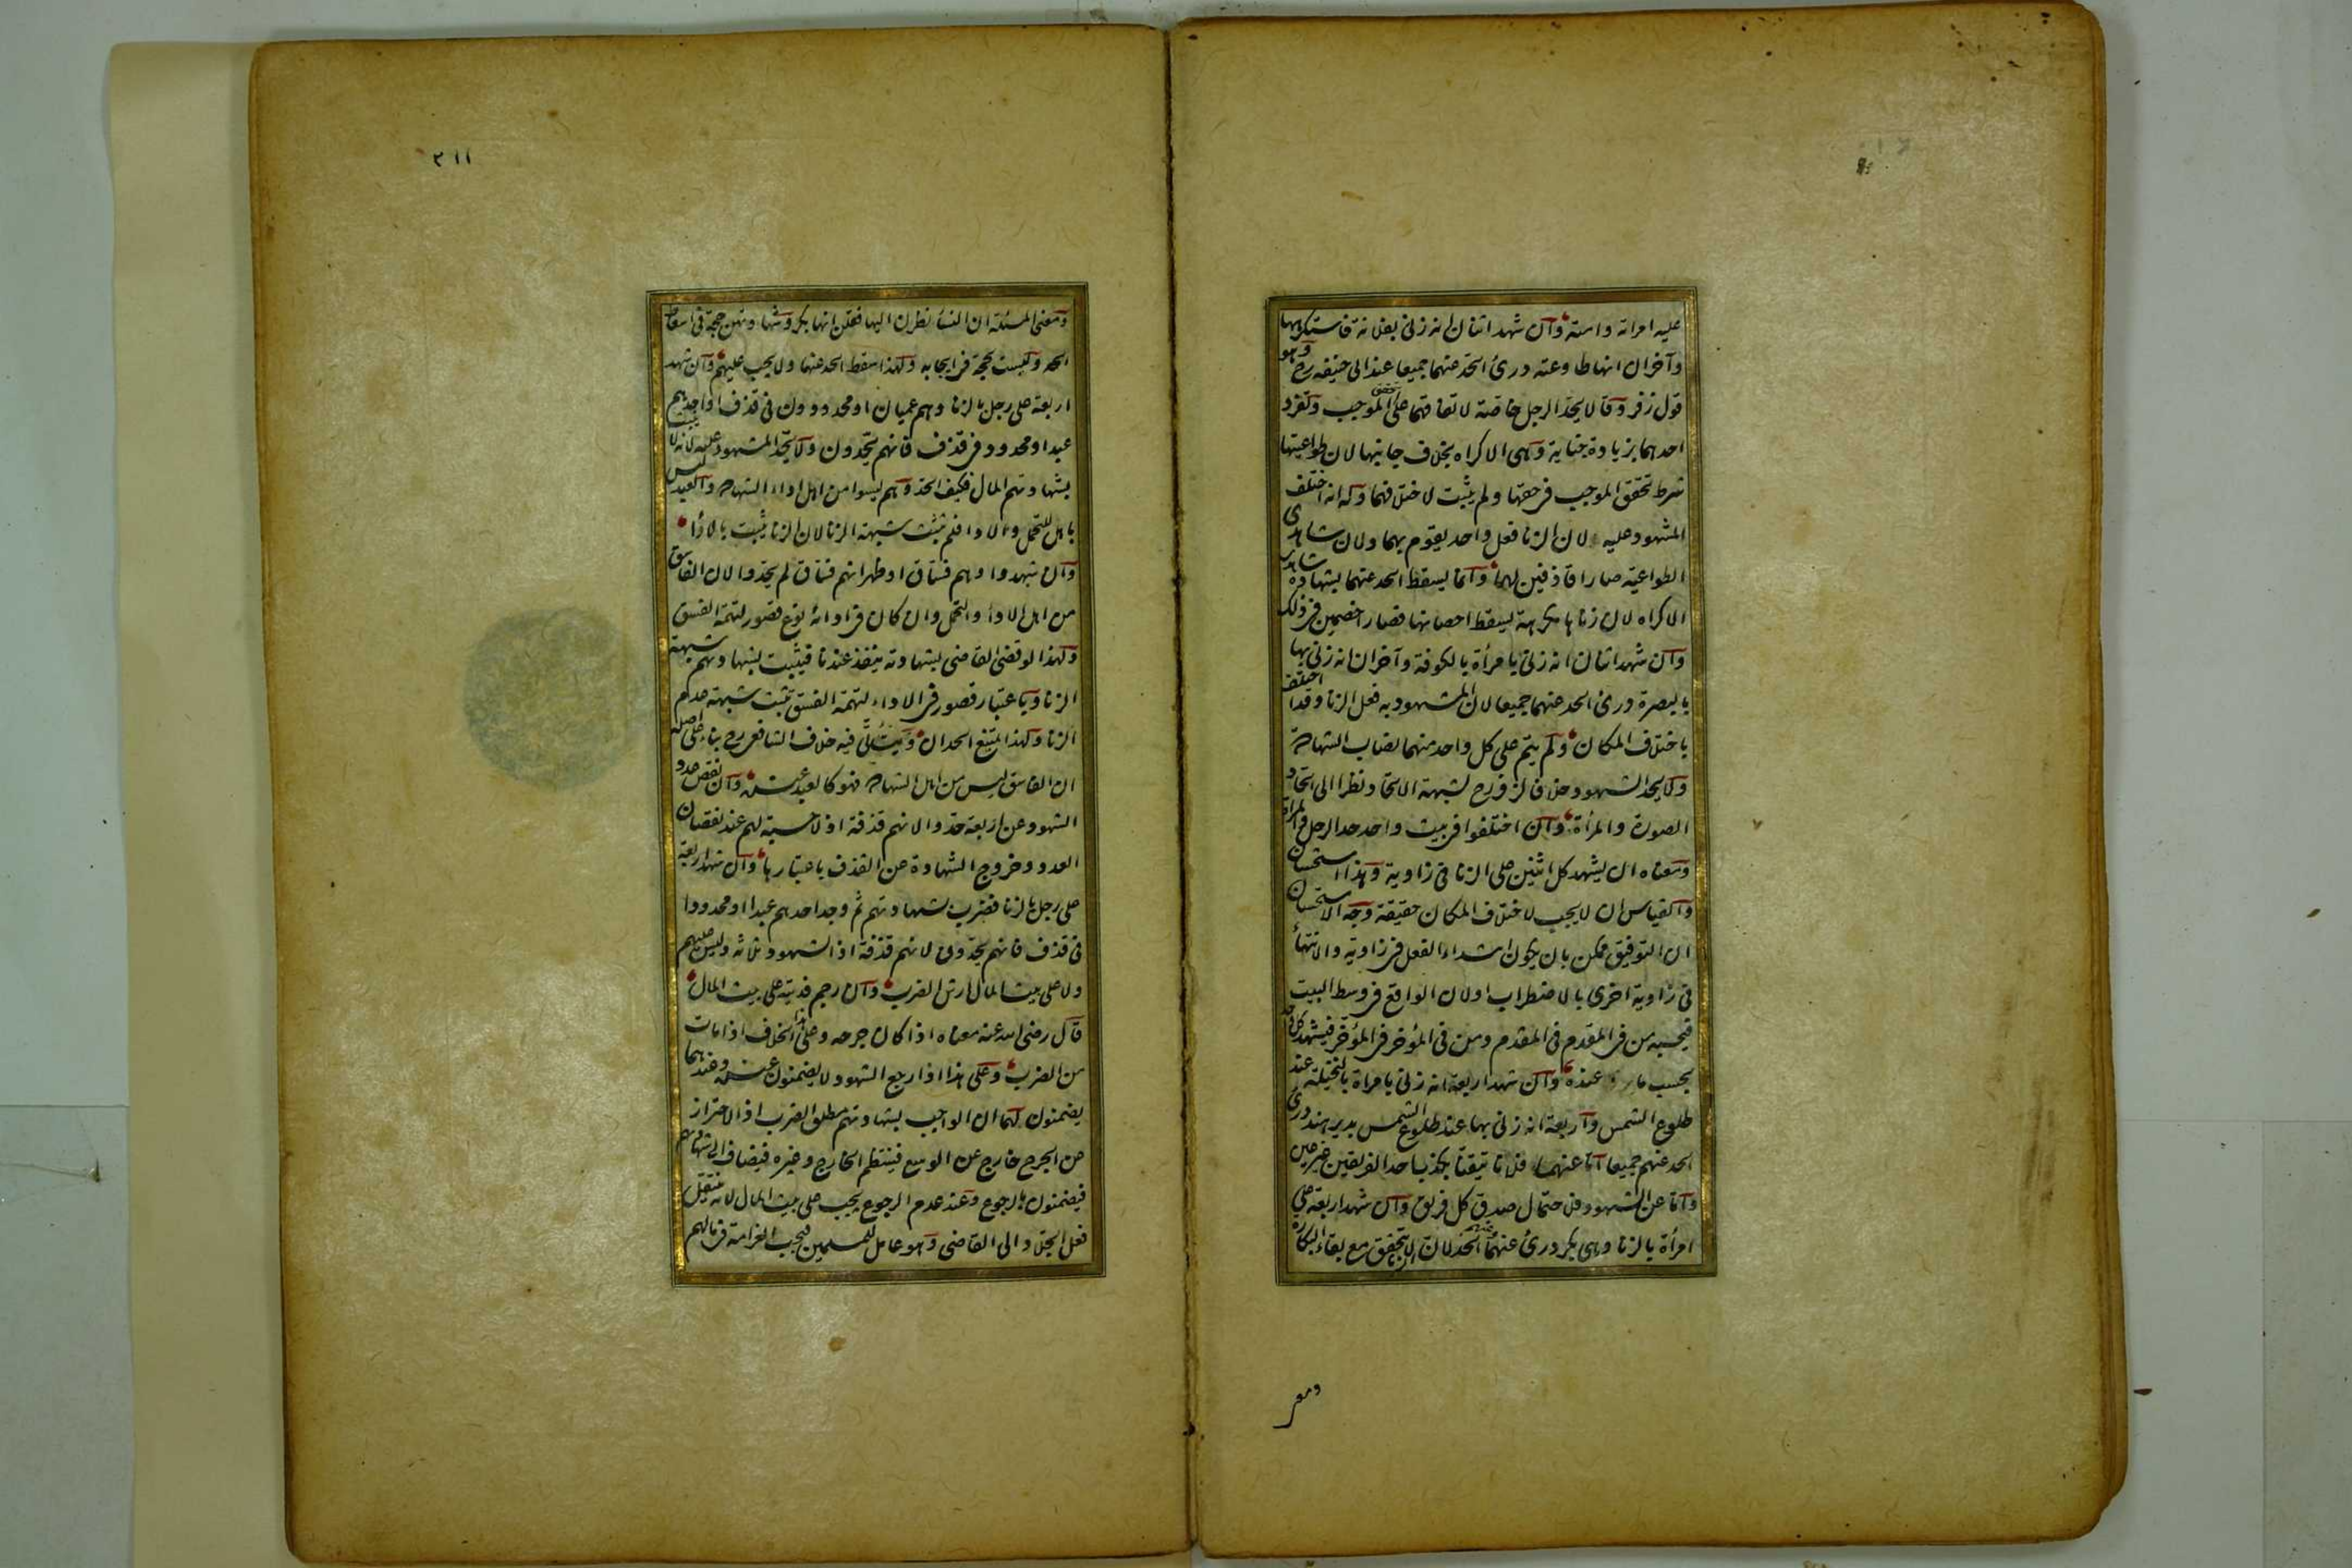 عليه امراته وامته وان شهد اثنان انه زنى بفلانة فاستكرهها
وآخران انها طاوعته درئ الحد عنهما جميعا عند ابى حنيفه رح وهو
قول زفر وقالا يحد الرجل خاصة لاتفاقهما على الموجب وتفرد
احدهما بزيادة جناية وهى الاكراه بخلاف جانبها لان طواعيتها
شرط تحقق الموجب فى حقها ولم يثبت لاختلافهما وله انه اختلف
المشهود عليه لان الزنا فعل واحد يقوم بهما ولان شاهدى
الطواعية صارا قاذفين لهما وانما يسقط الحد عنهما بشهادة شاهدى
الاكراه لان زناها مكرهة يسقط احصانها فصارا خصمين فى ذلك
وان شهد اثنان انه زنى بامرأة بالكوفة وآخران انه زنى بها
بالبصرة درئ الحد عنهما جميعا لان المشهود به فعل الزنا وقد اختلف
باختلاف المكان ولم يتم على كل واحد منهما نصاب الشهادة
ولا يحد الشهود خلافا لزفر رح لشبهة الاتحاد نظرا الى اتحاد
الصورة والمرأة وان اختلفوا فى بيت واحد حد الرجل والمرأة
ومعناه ان يشهد كل اثنين على الزنا فى زاوية وهذا استحسان
والقياس ان لا يجب لاختلاف المكان حقيقة وجه الاستحسان
ان التوفيق ممكن بان يكون ابتداء الفعل فى زاوية والانتهاء
فى زاوية اخرى بالاضطراب او لان الواقع فى وسط البيت
فيحسبه من فى المقدم فى المقدم ومن فى المؤخر فى المؤخر فيشهد كل
بحسب ما عنده وان شهد اربعة انه زنى بامراة بالنخيلة عند
طلوع الشمس واربعة انه زنى بها عند طلوع الشمس بدير هند درئ
الحد عنهم جميعا اما عنهما فلانا تيقنا بكذب احد الفريقين غير عين
واما عن الشهود فلاحتمال صدق كل فريق وان شهد اربعة على
امرأة بالزنا وهى بكر درئ الحد عنهما وعنهم لان الزنا لا يتحقق مع بقاء البكارة
ومعنى
٢١١
ومعنى المسئلة ان النساء نظرن اليها فقلن انها بكر وشهادتهن حجة فى اسقاط
الحد وليست بحجة فى ايجابه ولهذا سقط الحد عنهما ولا يجب عليهم وان شهد
اربعة على رجل بالزنا وهم عميان او محدودون فى قذف او احدهم
عبد او محدود فى قذف فانهم يحدون ولا يحد المشهود عليه لانه لا يثبت
بشهادتهم المال فكيف الحد وهم ليسوا من اهل اداء الشهادة والعبد ليس
باهل للتحمل والاداء فلم تثبت شبهة الزنا لان الزنا يثبت بالاداء
وان شهدوا وهم فساق او ظهر انهم فساق لم يحدوا لان الفاسق
من اهل الاداء والتحمل وان كان فى ادائه نوع قصور لتهمة الفسق
ولهذا لو قضى القاضى بشهادته ينفذ عندنا فيثبت بشهادتهم شبهة
الزنا وباعتبار قصور فى الاداء لتهمة الفسق تثبت شبهة عدم
الزنا ولهذا امتنع الحدان وسيأتى فيه خلاف الشافعى رح بناء على اصله
ان الفاسق ليس من اهل الشهادة فهو كالعبد عنده وان نقص عدد
الشهود عن اربعة حدوا لانهم قذفة اذ لا حسبة لهم عند نقصان
العدد وخروج الشهادة عن القذف باعتبارها وان شهد اربعة
على رجل بالزنا فضرب بشهادتهم ثم وجد احدهم عبدا او محدودا
فى قذف فانهم يحدون لانهم قذفة اذ الشهود ثلاثة وليس عليهم
ولا على بيت المال ارش الضرب وان رجم فديته على بيت المال
قال رضى الله عنه معناه اذا كان جرحه وعلى هذا الخلاف اذا مات
من الضرب وعلى هذا اذا رجع الشهود لا يضمنون عنده وعندهما
يضمنون لهما ان الواجب بشهادتهم مطلق الضرب اذ الاحتراز
عن الجرح خارج عن الوسع فينتظم الجارح وغيره فيضاف الى شهادتهم
فيضمنون بالرجوع وعند عدم الرجوع يجب على بيت المال لانه ينتقل
فعل الجلاد الى القاضى وهو عامل للمسلمين فيجب الغرامة فى مالهم